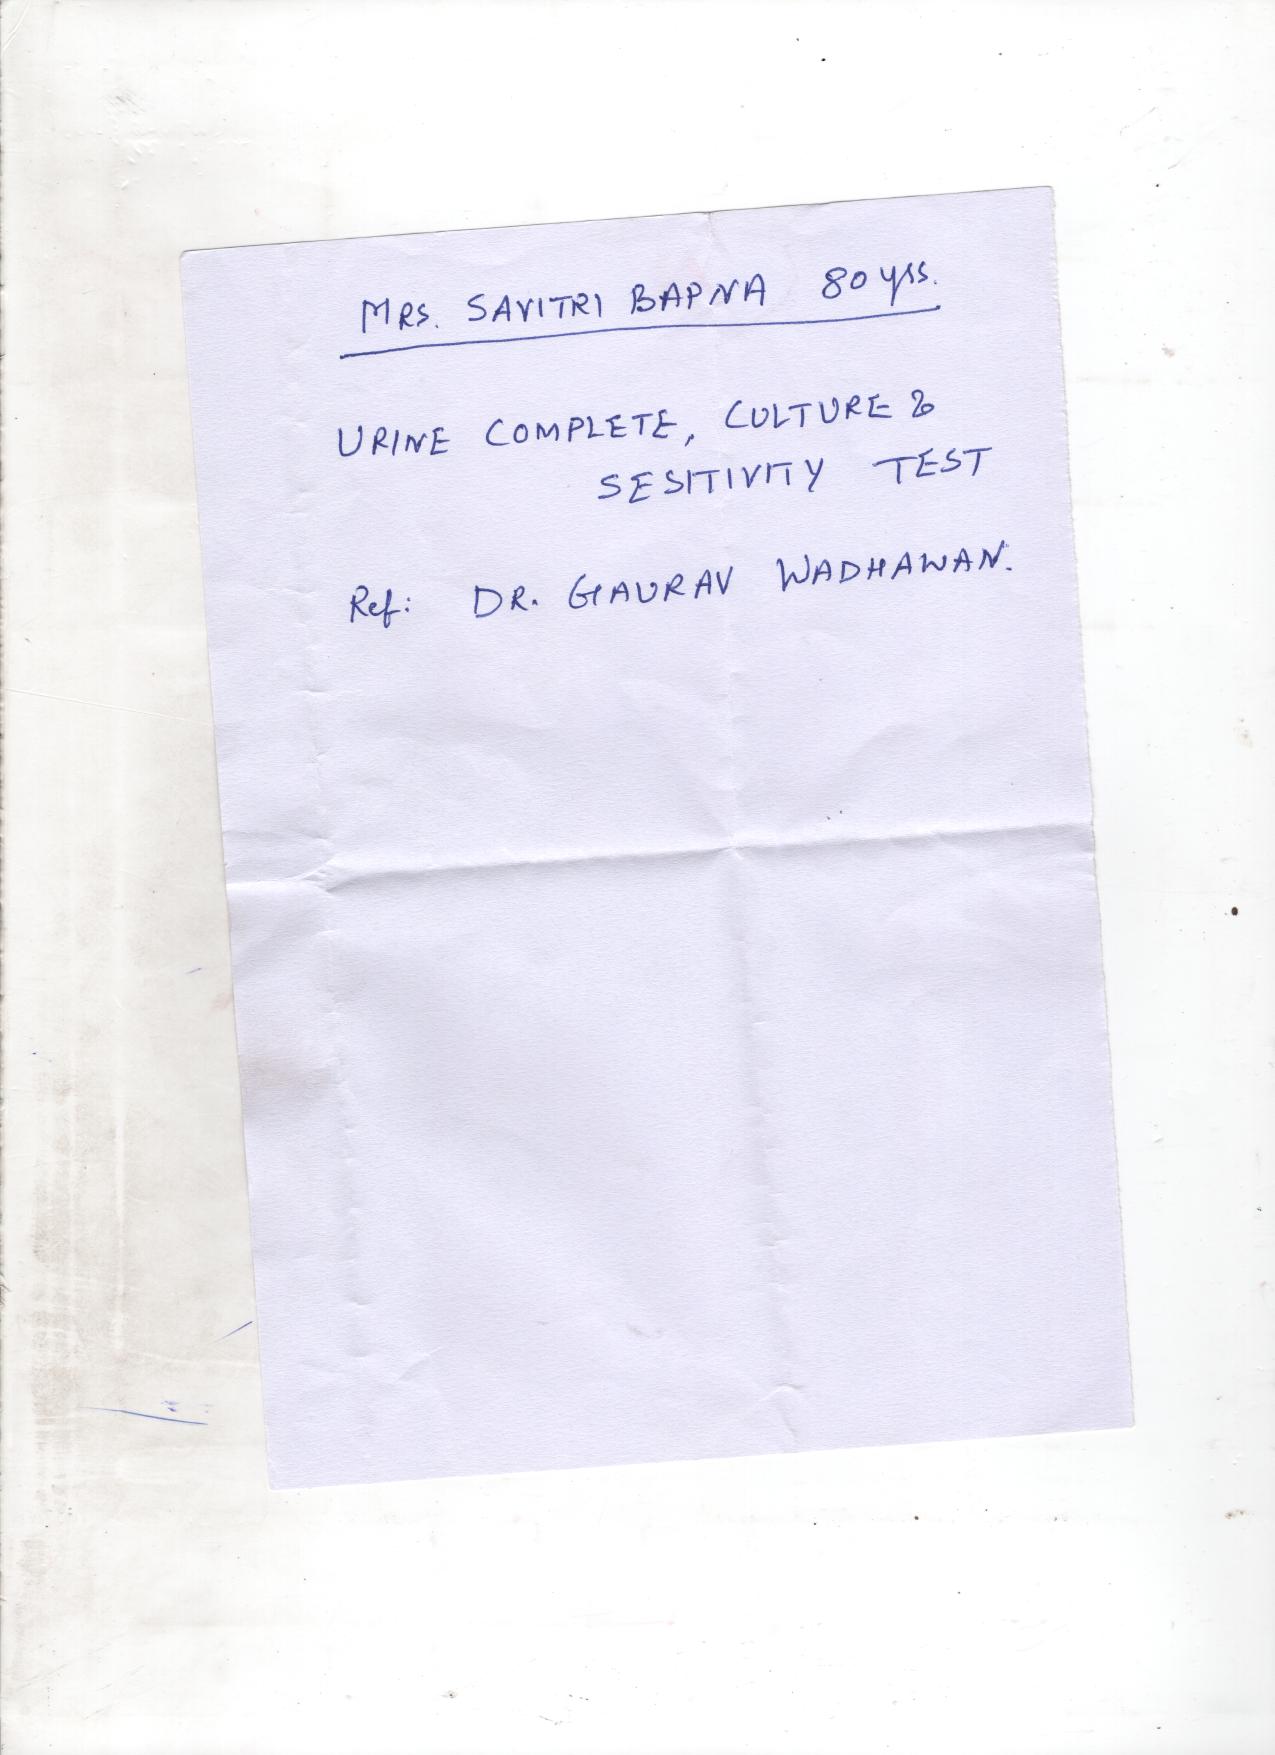 MRS. SAVITRI BAPNA 80 yrs.
URINE COMPLETE, CULTURE &
SESITIVITY TEST
Ref: DR. GAURAV WADHAWAN.